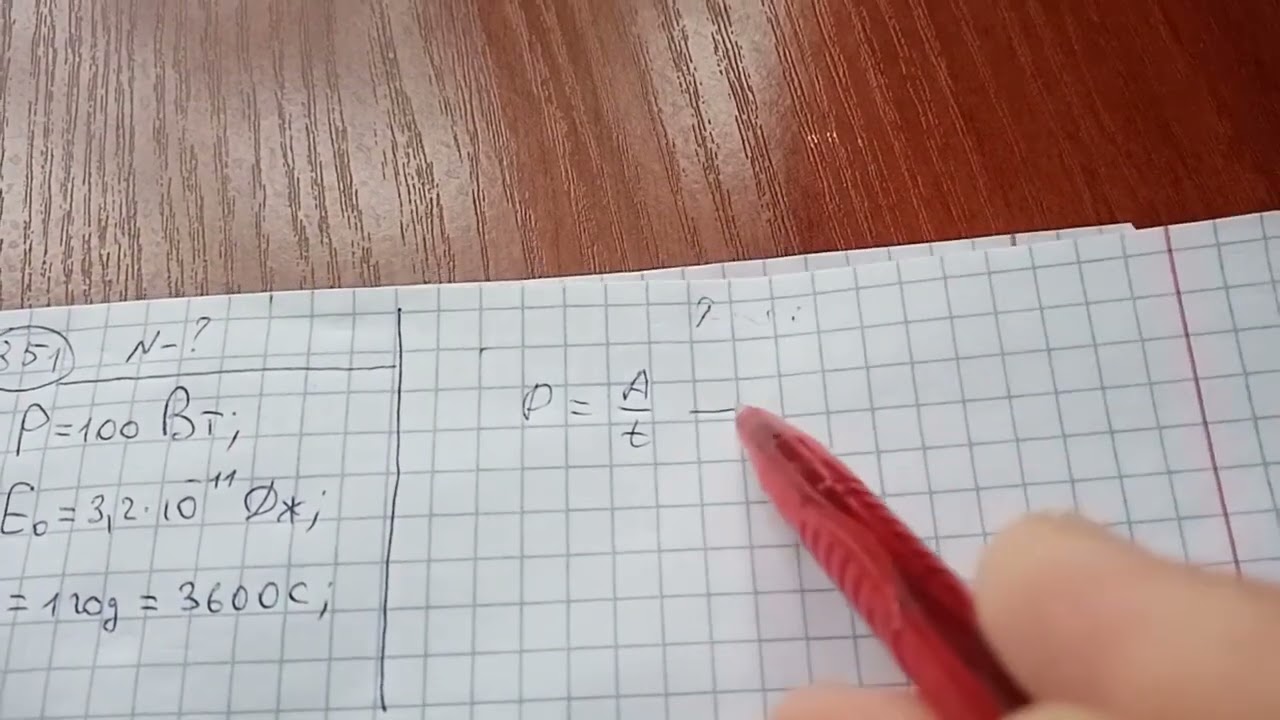 351 N-?
P=100 Вт;
E₀=3,2·10⁻¹¹ Дж;
=1год=3600С;
P = A/t —